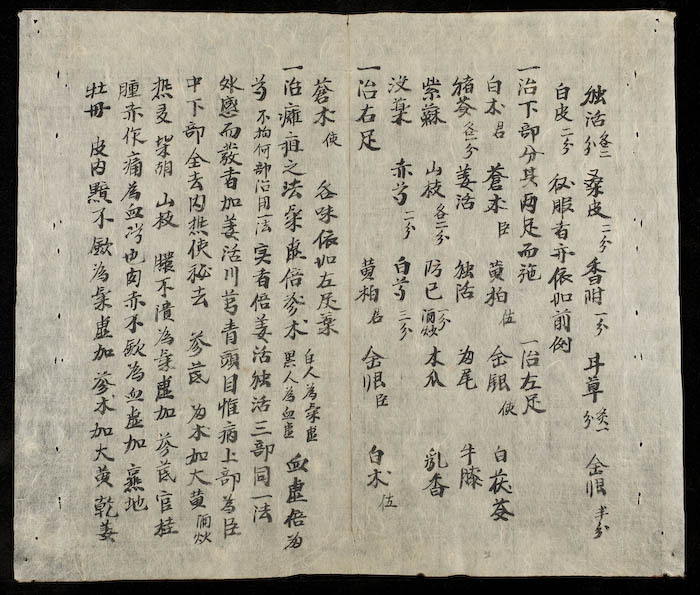 独活各二分 桑皮二分 香附一分 耳草炙一分 金限半分
白皮二分 仅服者亦依加前例
一治下部分其两足而施 一治左足
白朮君 蒼朮臣 黄柏佐 金銀使 白茯苓
猪苓各二分 姜活 独活 为尾 牛膝
紫蘇 山枝各二分 防已一分酒炒 木瓜 乳香
没藥 赤芍二分 白芍三分
一治右足 黄柏君 金限臣 白朮佐
蒼朮使 各味依加左足藥
一治癰疽之法氣虚倍參朮 白人為氣虚 黑人為血虚 血虚倍为
芎 不拘何部治用一法 实者倍姜活独活三部同一法
外感而發者加姜活川芎青頭目惟病上部為臣
中下部全去内热使秘去 參芪 为朮加大黄酒炒
热 柴胡 山枝 膿不潰為氣虚加 參芪官桂
腫赤作痛為血滞也肉赤不斂為血虚加 熟地
牡丹 皮内黯不斂為氣虚加 參朮加大黄乾姜